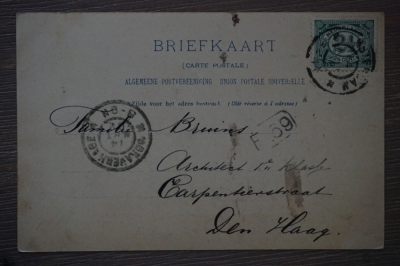 BRIEFKAART
(CARTE POSTALE)
ALGEMEENE POSTVEREENIGING UNION POSTALE UNIVERSELLE
Zijde voor het adres bestemd. (Côté réservé à l'adresse)
Familie Bruins
Architect 1e klasse
Carpentierstraat
Den Haag.